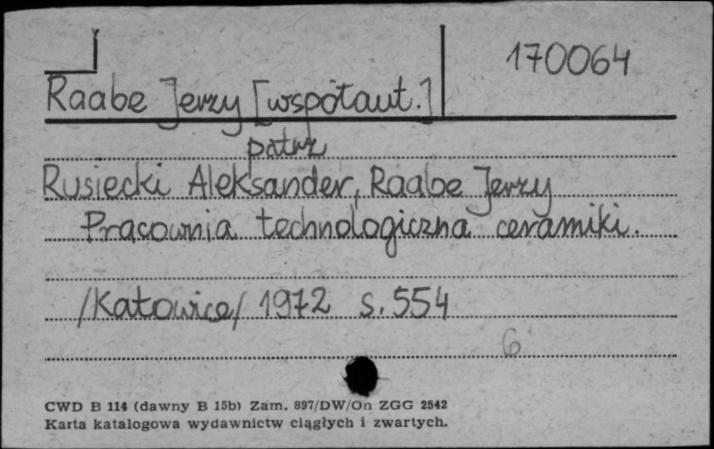 170064
Raabe Jerzy [współaut.]
patrz
Rusiecki Aleksander, Raabe Jerzy
Pracownia technologiczna ceramiki.
/Katowice/ 1972 s. 554
6
CWD B 114 (dawny B 15b) Zam. 897/DW/On ZGG 2542
Karta katalogowa wydawnictw ciągłych i zwartych.